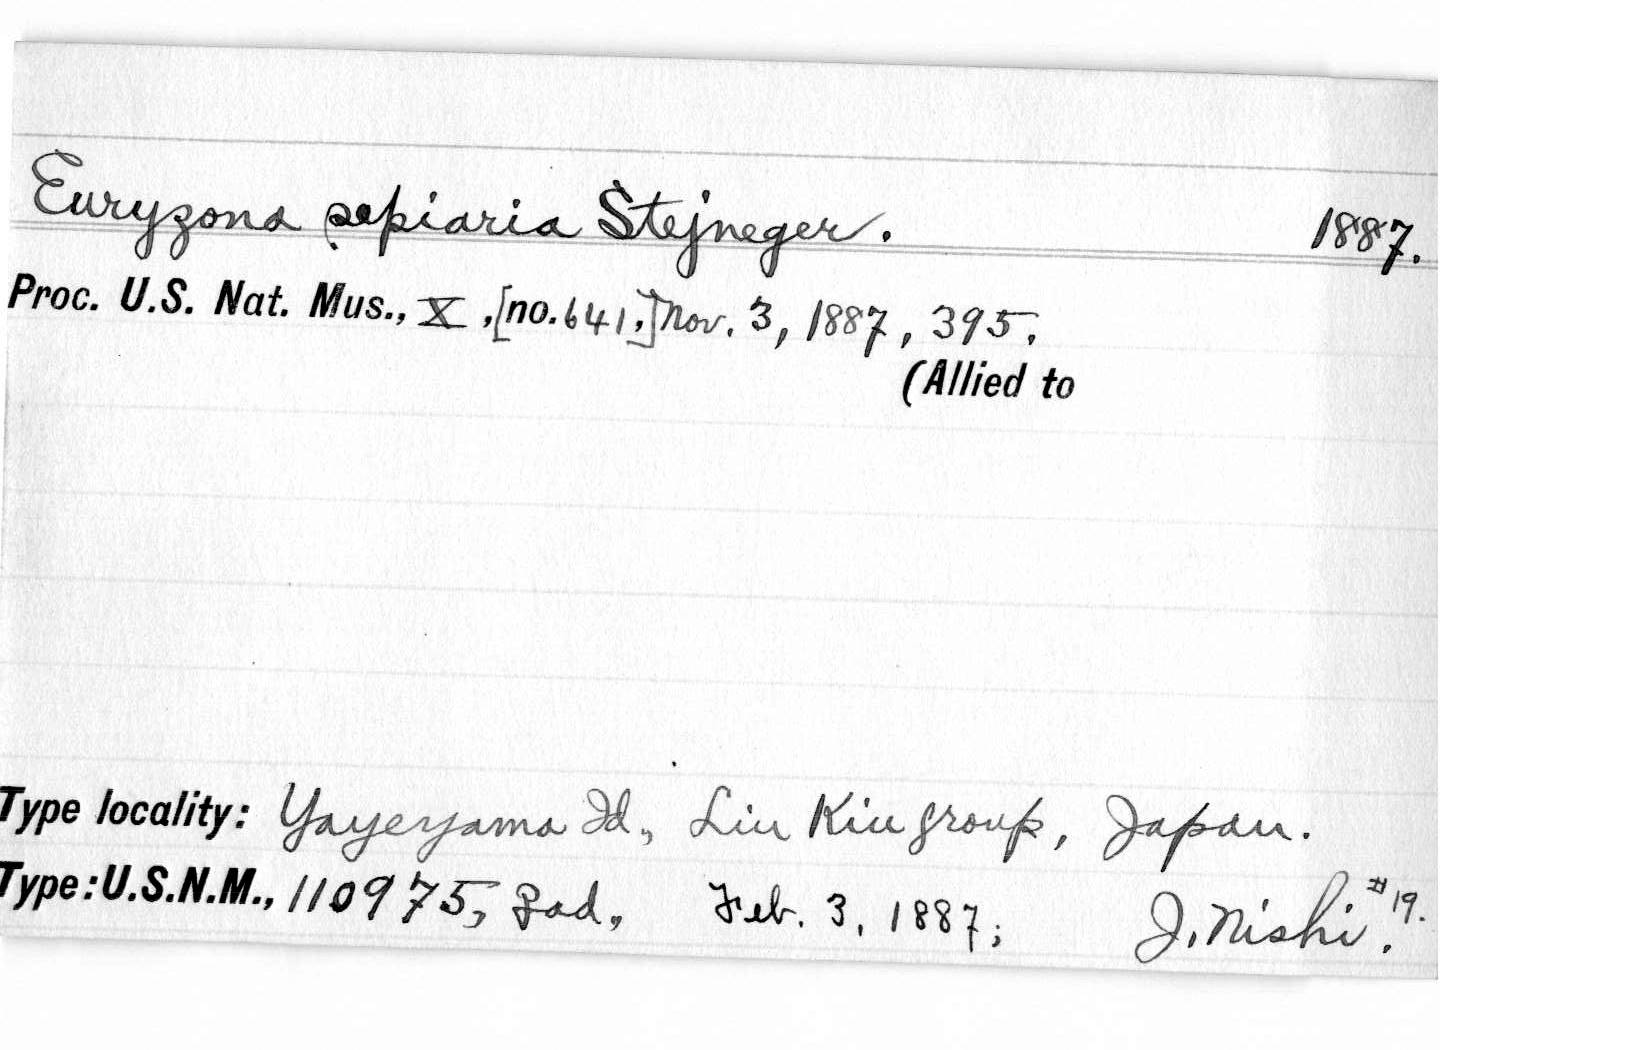 Euryzona sepiaria Stejneger. 1887.
Proc. U.S. Nat. Mus., X, [no. 641,] Nov. 3, 1887, 395.
(Allied to
Type locality: Yayeyama Id., Liu Kiu group, Japan.
Type: U.S.N.M., 110975, ad., Feb. 3, 1887; J. Nishi. #19.